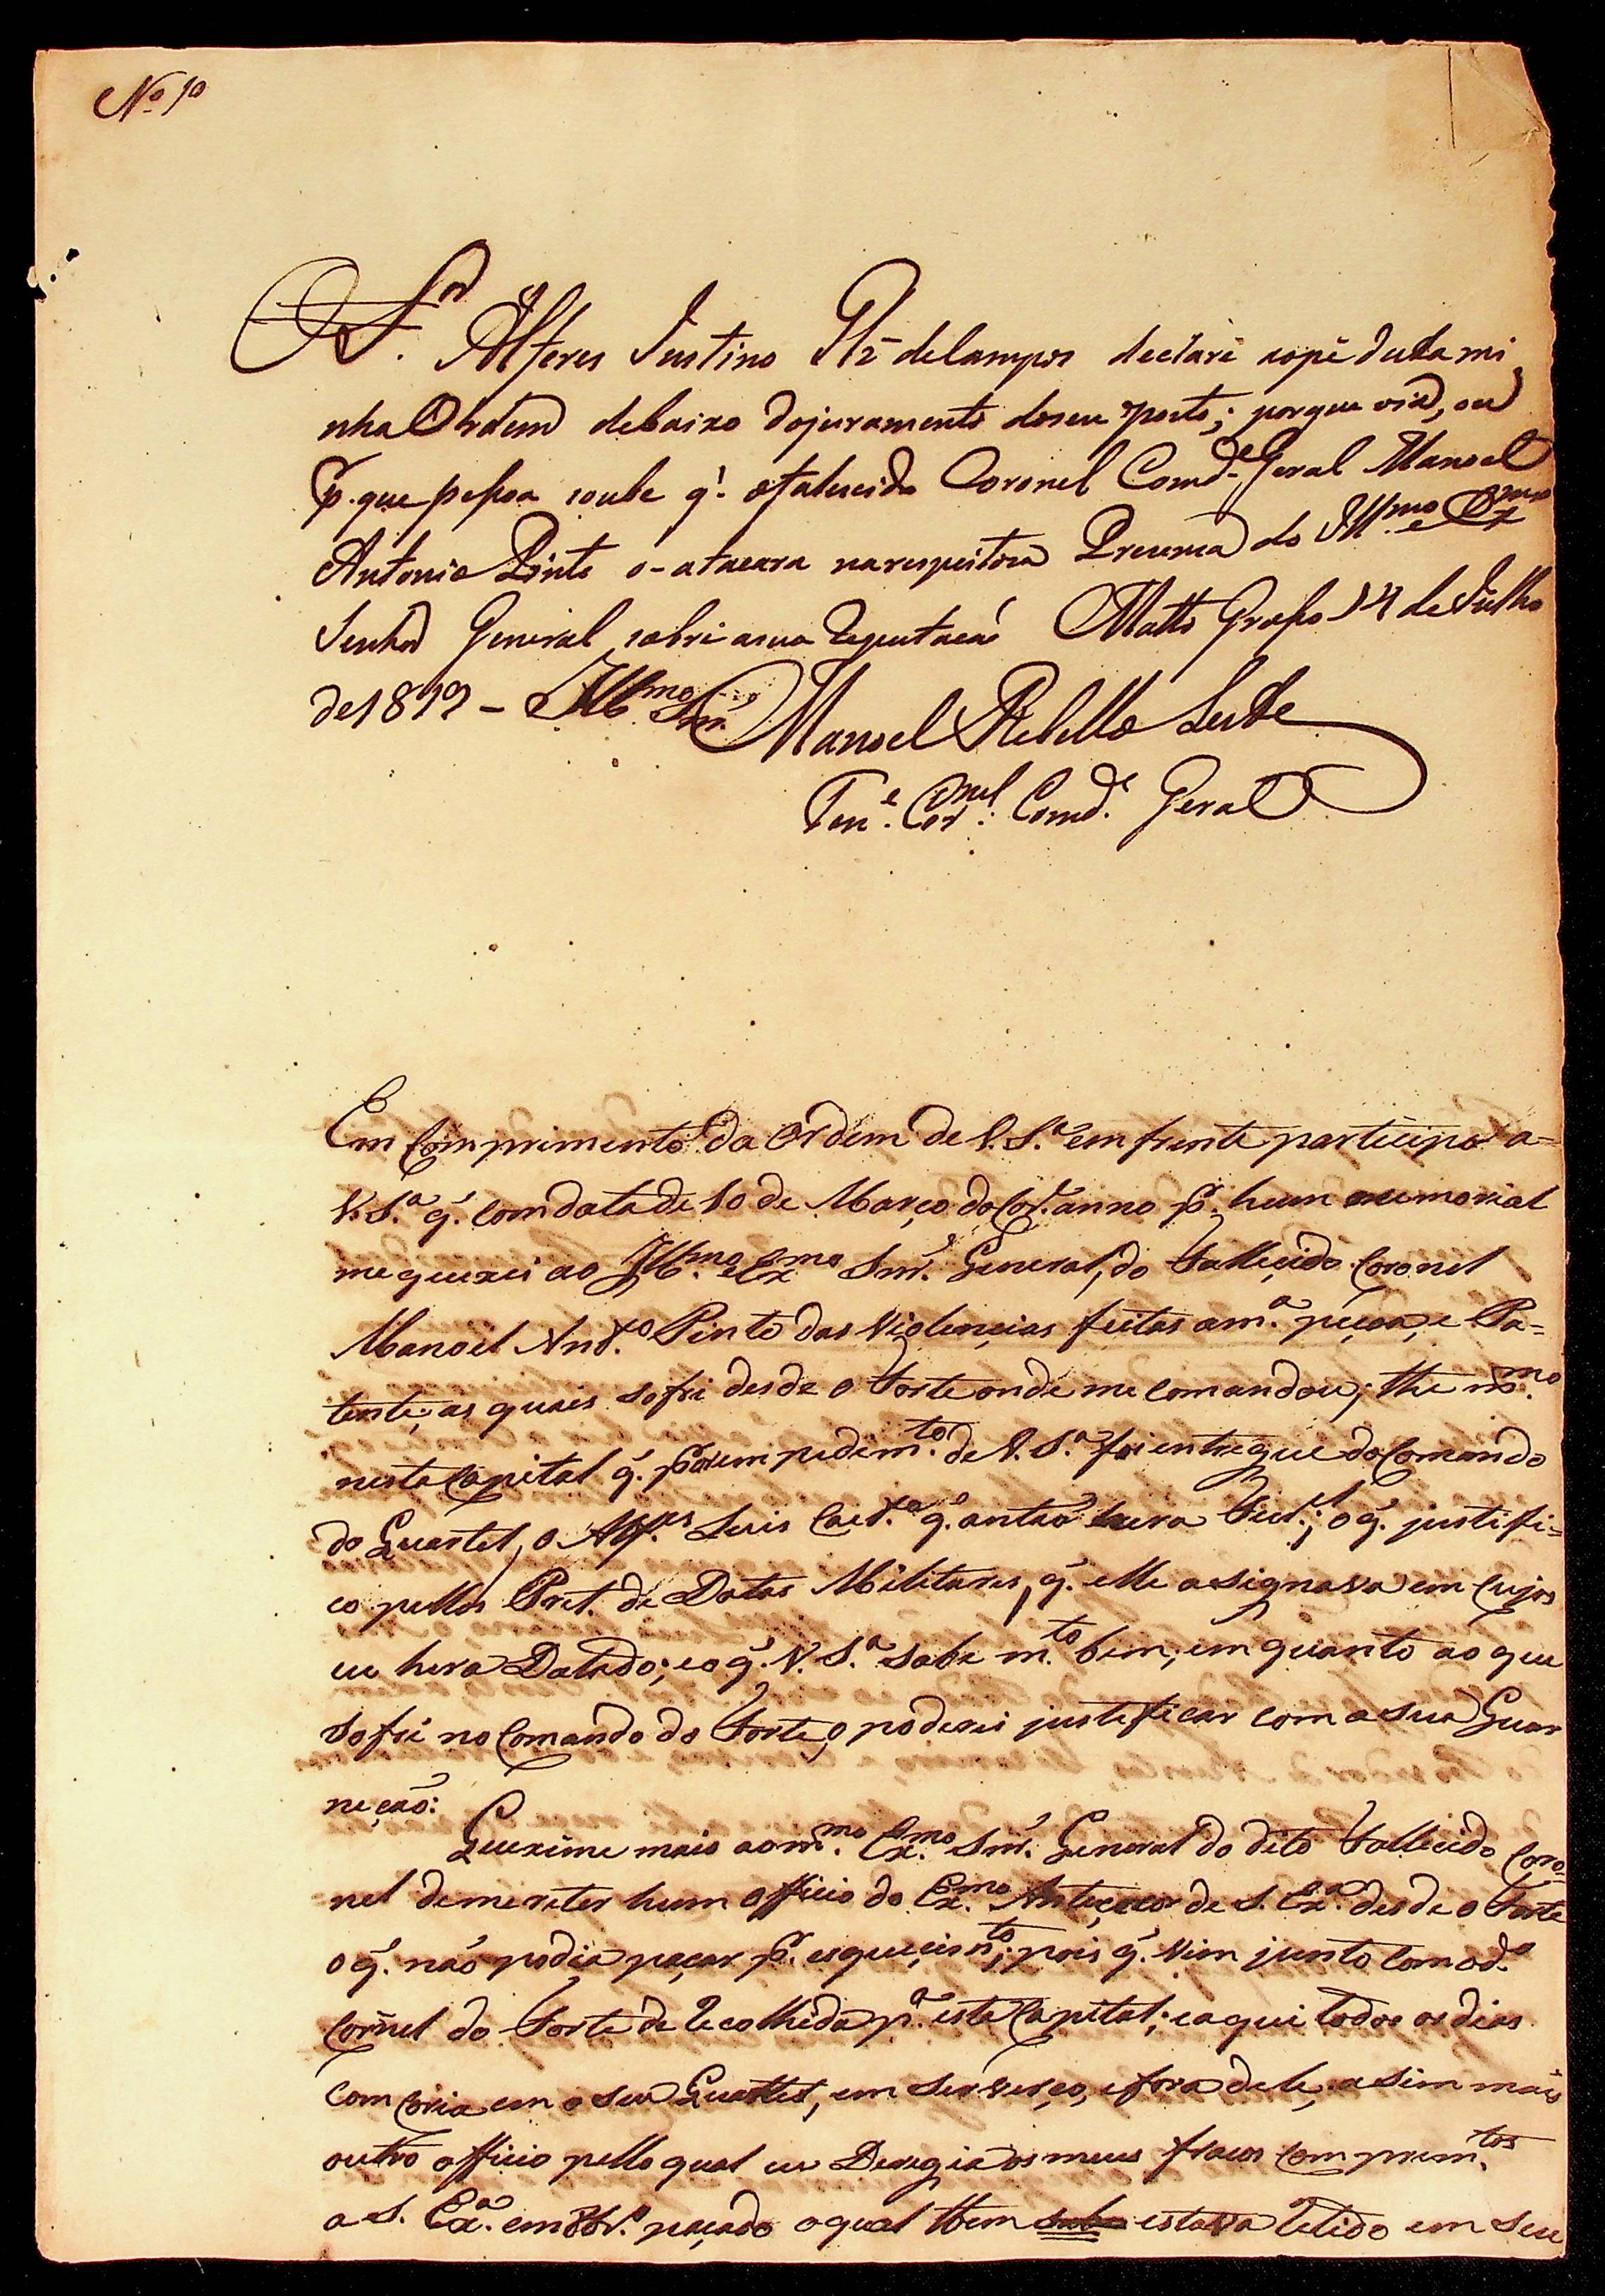 Nº 10
O Sr. Alferes Justino Roiz de Campos declare ao pé desta mi
nha Ordem debaixo do juramento do seu posto; porque via, ou
p. que peßoa soube q. o falecido Coronel Comde. Geral Manoel
Antonio Pinto o-atacara na respeitosa Prezença do Illmo. e Exmo
Senhor General sobre a sua Reputação Matto Großo 14 de Julho
de 1819 – Illmo Snr.
Manoel Rebello Leite
Tene. Coronel. Comde. Geral
Em Comprimento da Ordem de V. S.a em frente participo a=
V. S.a q. com data de 10 de Março do Cor.e anno p. hum memorial
me queixei ao Illmo. e Exmo Snr. General, do Fallecido Coronel
Manoel Ant.o Pinto das Violencias feitas a m.a peçoa, e Pa=
tente, as quais sofri desde o Forte onde me comandou; the no mmo.
nesta Capital q. por empedim.to de V. S.a foi entregue do Comando
do Quartel, o Alfes. Luis Caet.o q. antão hera; o q. justifi=
co pellos Pret. de Datas Militares, q. elle asignava em cujos
eu hera Datado; e o q. V. S.a sabe m.to bem; em quanto ao que
sofri no Comando do Forte, o poderei justeficar com a sua Guar
neção:
Quexeime mais ao mmo. Exmo. Snr. General do dito Fallecido Coro=
nel de me reter hum officio do Exmo. Anteceçor de S. Ex.a desde o Forte
o q. não podia paçar p. esquecim.to; pois q. Vim junto com o d.o
Cornel do Forte de Recolhida p.a esta Capital; e aqui todos os dias
Comcoria em o seu Quartel, em serverço, e fora dele, asim mais
outro officio pello qual eu Deregia os meus fracos Comprim.tos
a S. Ex.a em 8br.o paçado o qual tbem estava Retido em seu